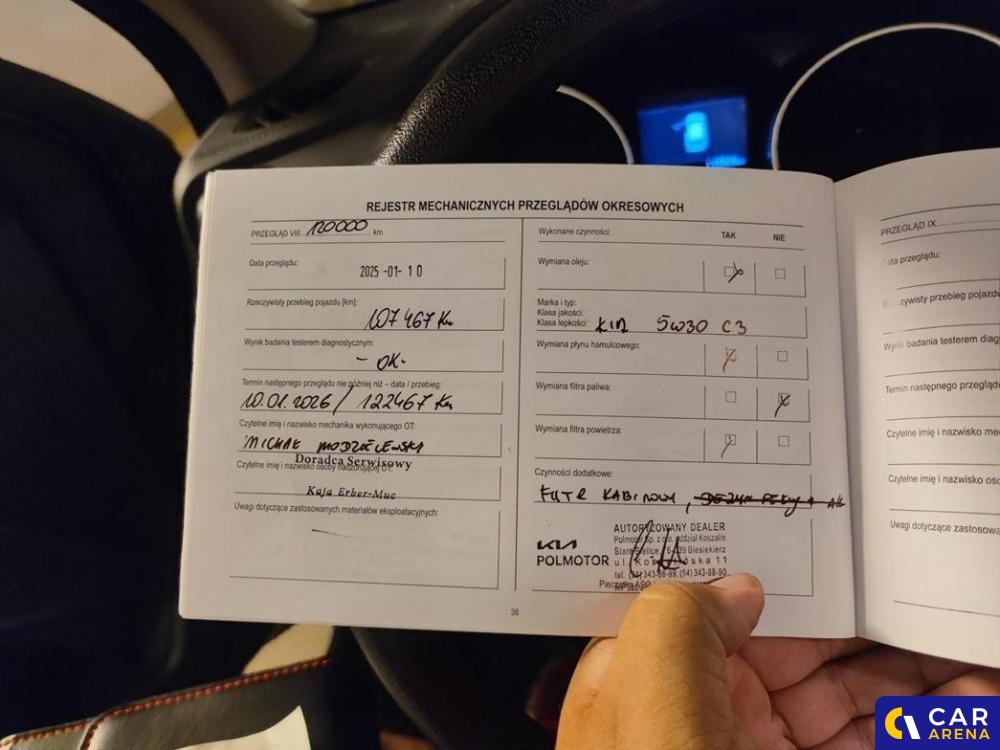 REJESTR MECHANICZNYCH PRZEGLĄDÓW OKRESOWYCH
PRZEGLĄD VIII 120000 km
Data przeglądu:
2025-01-10
Rzeczywisty przebieg pojazdu [km]:
107467 Km
Wynik badania testerem diagnostycznym:
- OK.
Termin następnego przeglądu nie później niż – data / przebieg:
10.01.2026 / 122467 Km
Czytelne imię i nazwisko mechanika wykonującego OT:
MICHAŁ MODZELEWSKI
Doradca Serwisowy
Czytelne imię i nazwisko osoby nadzorującej OT:
Kaja Erber-Muc
Uwagi dotyczące zastosowanych materiałów eksploatacyjnych:
Wykonane czynności:
TAK NIE
Wymiana oleju:
Marka i typ:
Klasa jakości:
Klasa lepkości: KIA 5W30 C3
Wymiana płynu hamulcowego:
Wymiana filtra paliwa:
Wymiana filtra powietrza:
Czynności dodatkowe:
FILTR KABINOWY,
AUTORYZOWANY DEALER
Polmotor Sp. z o.o. oddział Koszalin
Stare Bielice, 76-039 Biesiekierz
ul. Koszalińska 11
tel. (94) 343-88-99, (94) 343-88-90
KIA
POLMOTOR
36
PRZEGLĄD IX
Data przeglądu:
Rzeczywisty przebieg pojazdu
Wynik badania testerem
Termin następnego przeglądu
Czytelne imię i nazwisko
Czytelne imię i nazwisko
Uwagi dotyczące
CAR
ARENA